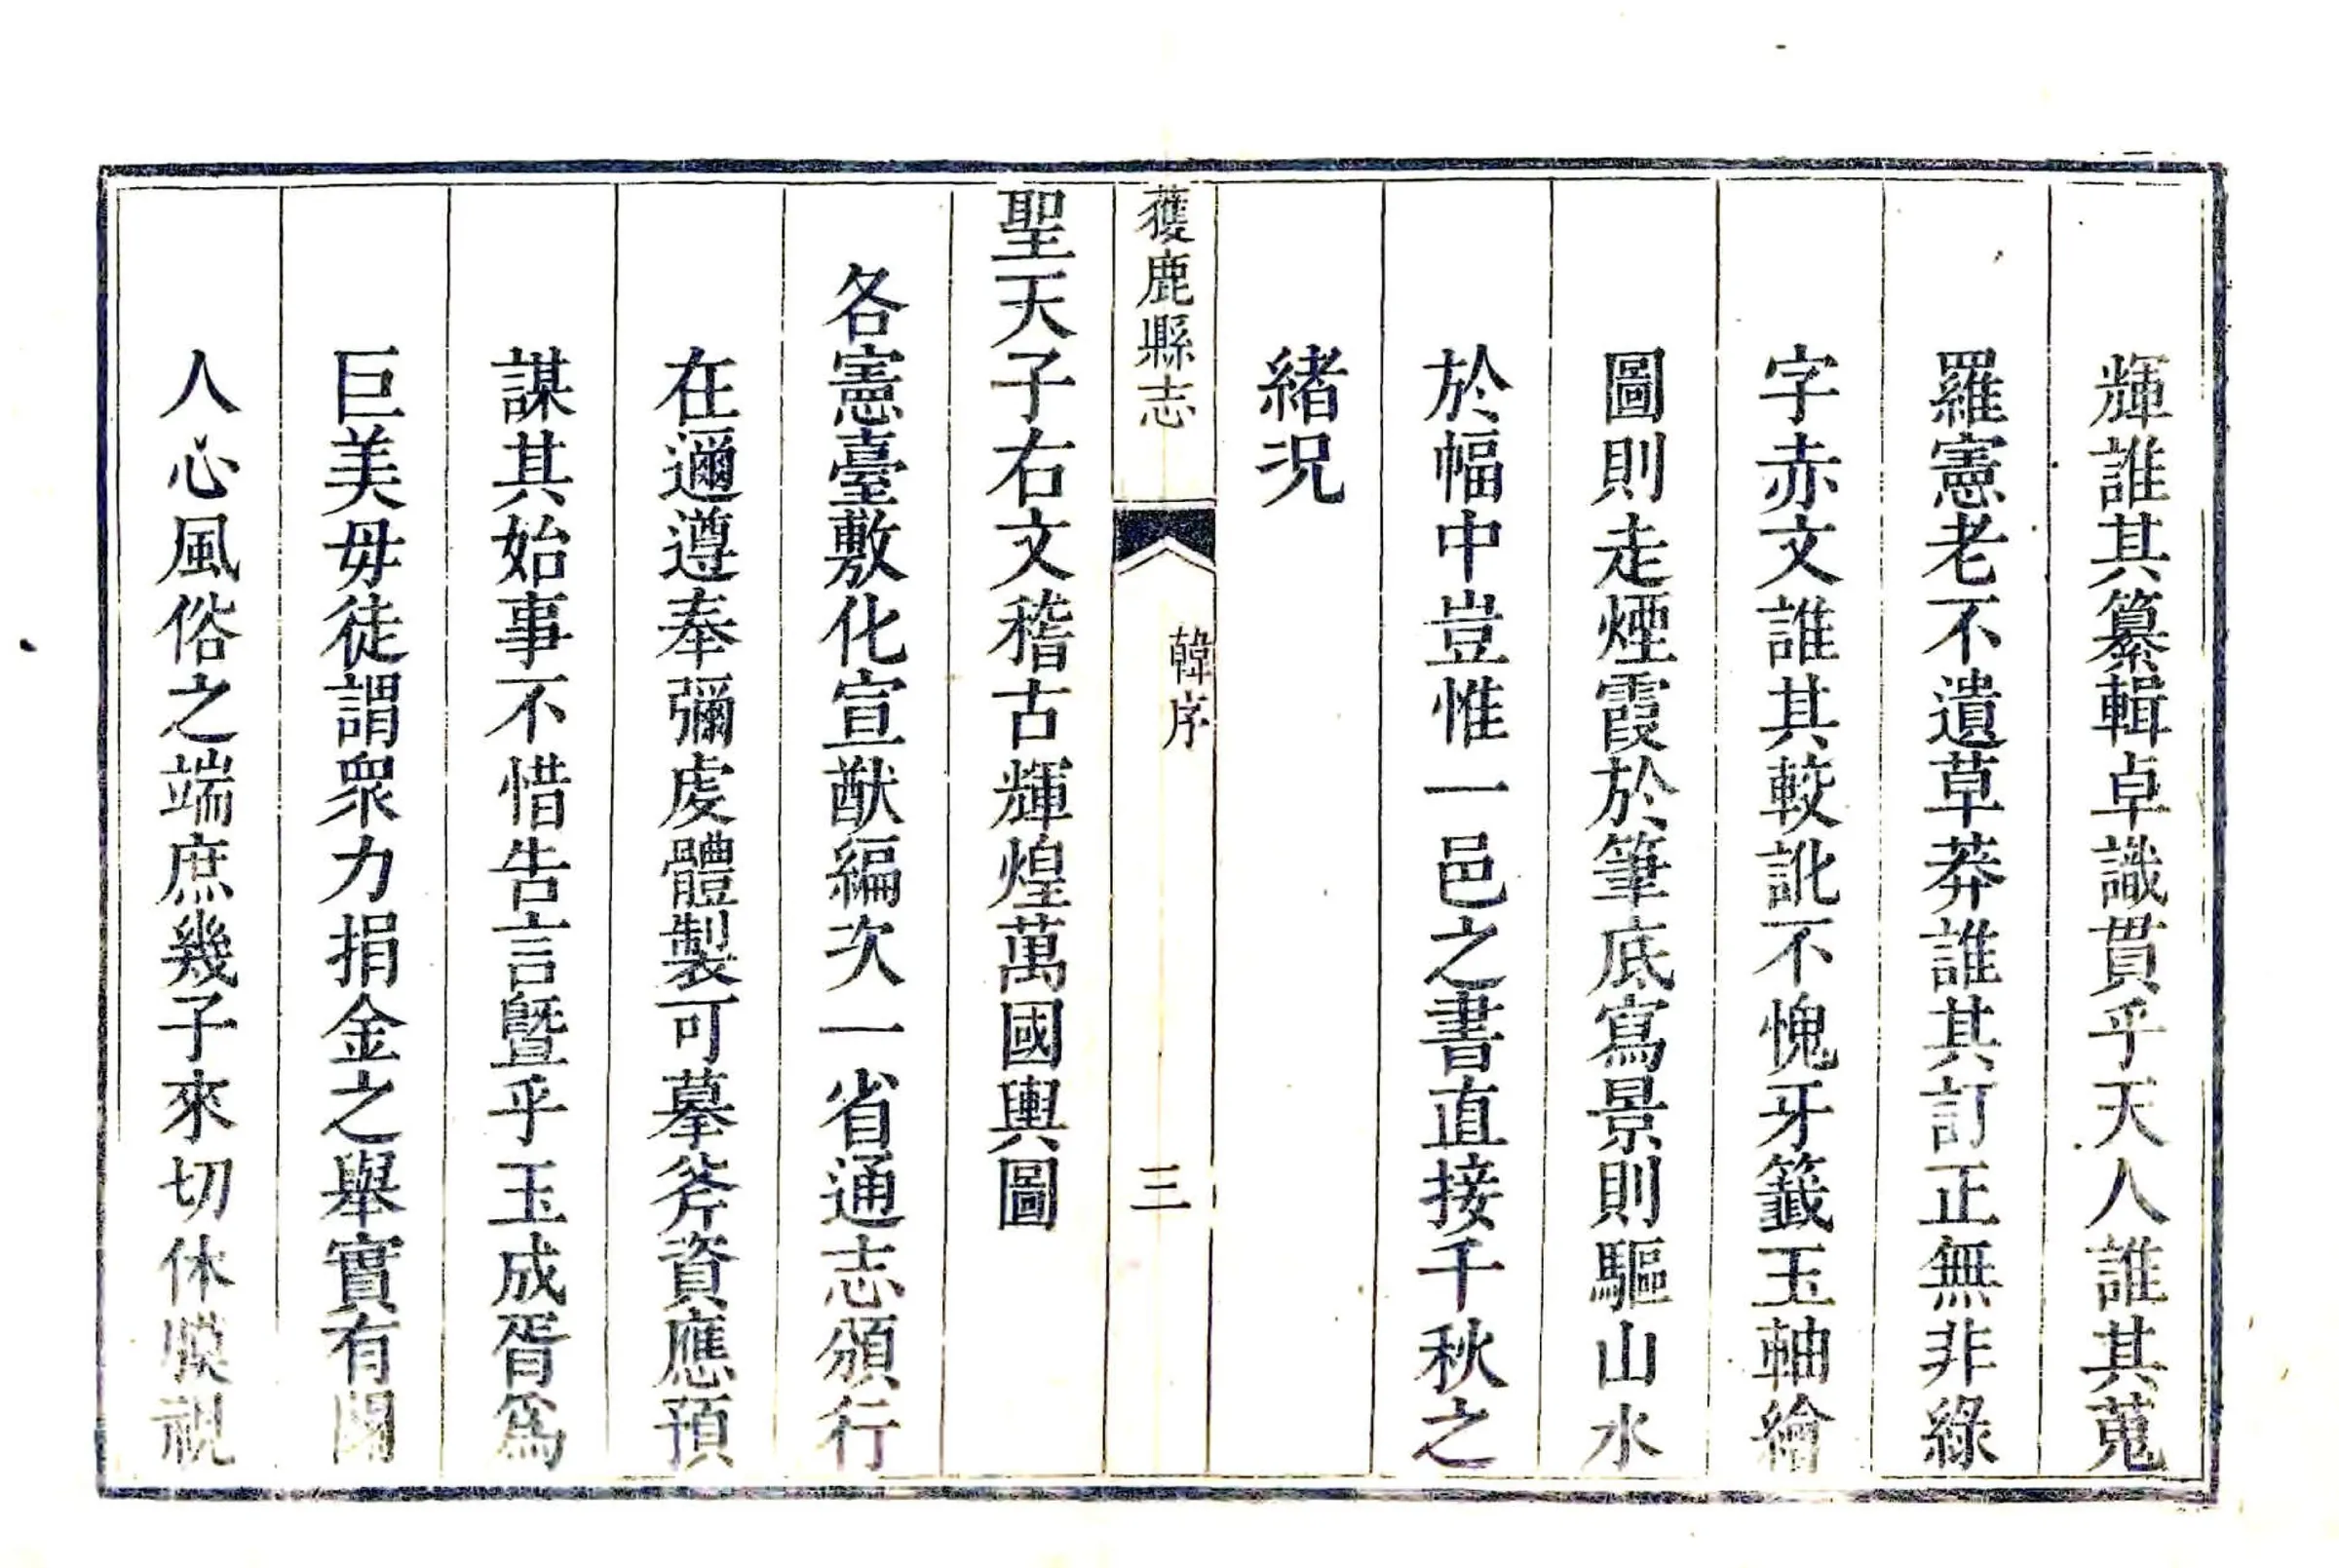 輝誰其纂輯卓識貫乎天人誰其蒐
羅憲老不遺草莽誰其訂正無非綠
字赤文誰其較訛不愧牙籤玉軸繪
圖則走煙霞於筆底寫景則驅山水
於幅中豈惟一邑之書直接千秋之
緒況
獲鹿縣志
韓序
三
聖天子右文稽古輝煌萬國輿圖
各憲臺敷化宣猷編次一省通志頒行
在邇遵奉彌虔體製可摹斧資應預
謀其始事不惜告言曁乎玉成胥爲
巨美毋徒謂衆力捐金之舉實有關
人心風俗之端庶幾子來切休膜視